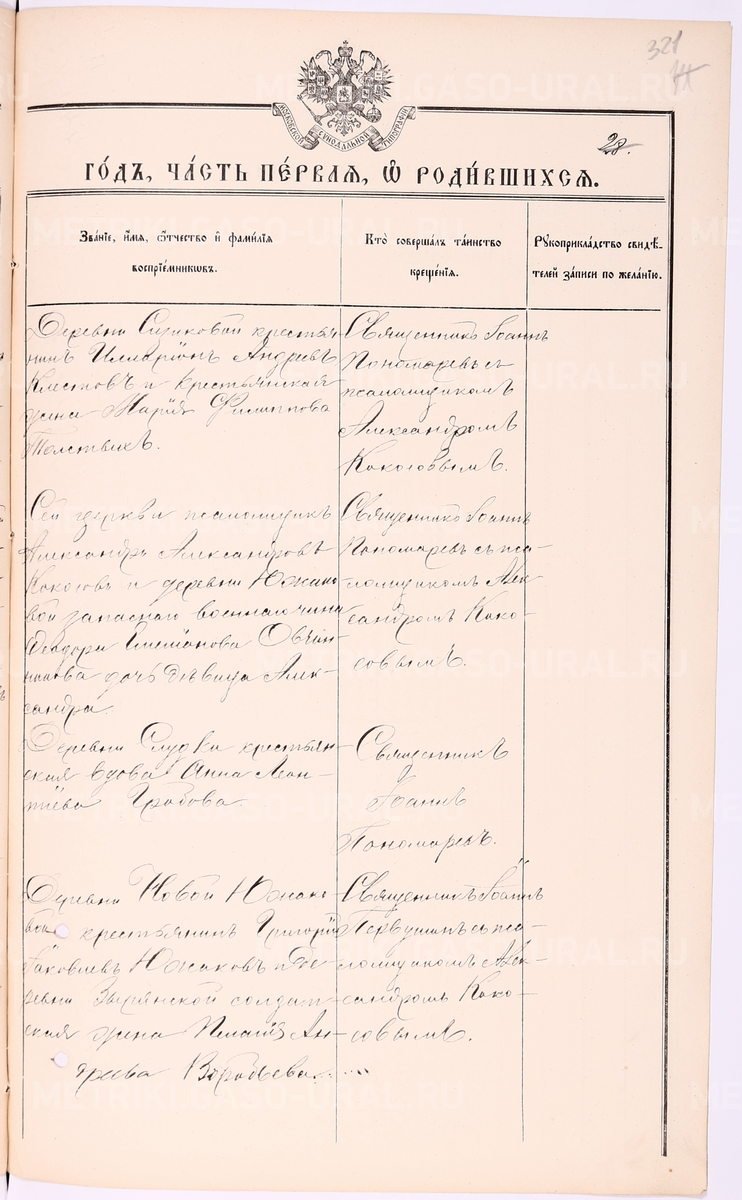 321
28.
МОСКОВСКОЙ СѴНОДАЛЬНОЙ ТИПОГРАФІИ
ГО́ДЪ, ЧА́СТЬ ПЕ́РВАЯ, Ѡ҆ РОДИ́ВШИХСЯ.
Зва́нїе, и҆́мя, ѻ҆́тчество и҆ фами́лїя
воспрїе́мниковъ.
Кто̀ соверша́лъ та́инство
креще́нїя.
Рꙋкоприкла́дство свидѣ́-
телей за́писи по жела́нїю.
Деревни Сизиковой крестья-
нинъ Илларіонъ Андреевъ
Клестовъ и крестьянская
жена Марія Филиппова
Толстыхъ.
Священникъ Іоаннъ
Пономаревъ съ
псаломщикомъ
Александромъ
Кокосовымъ.
Сей церкви псаломщикъ
Александръ Александровъ
Кокосовъ и деревни Южако-
вой запаснаго военнаго чина
Ѳеодора Симеонова Овчин-
никова дочь дѣвица Алек-
сандра.
Священникъ Іоаннъ
Пономаревъ съ пса-
ломщикомъ Алек-
сандромъ Коко-
совымъ.
Деревни Слудки крестьян-
ская вдова Анна Леон-
тіева
Священникъ
Іоаннъ
Пономаревъ.
Деревни Новой Южако-
вой крестьянинъ Григорій
Іаковлевъ Южаковъ и де-
ревни Зырянской солдат-
ская жена Пелагія Ан-
дреева Воробьева.
Священникъ Іоаннъ
Первушинъ съ пса-
ломщикомъ Алек-
сандромъ Коко-
совымъ.
METRIKI.GASO-URAL.RU